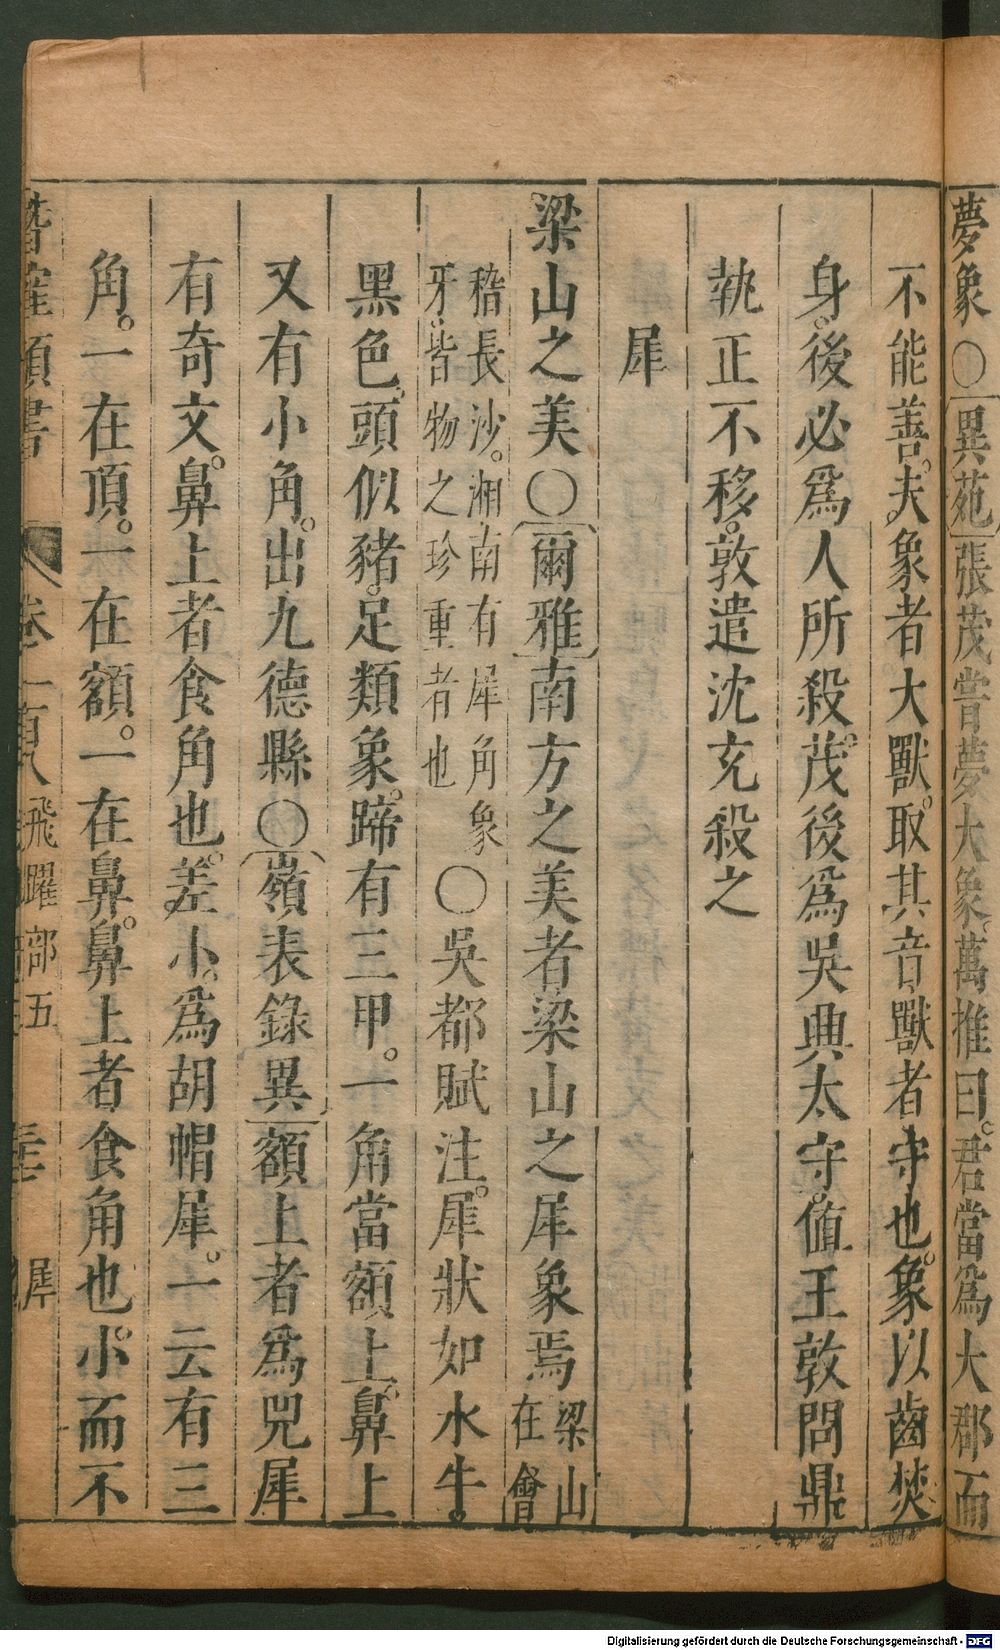 夢象〇異苑張茂嘗夢大象萬推曰君當爲大郡而
不能善夫象者大獸取其音獸者守也象以齒焚
身後必爲人所殺茂後爲吳興太守值王敦問鼎
執正不移敦遣沈充殺之
犀
梁山之美〇爾雅南方之美者梁山之犀象焉梁山在會
稽長沙湘南有犀角象牙皆物之珍重者也〇吳都賦注犀狀如水牛
黑色頭似豬足類象蹄有三甲一角當額上鼻上
又有小角出九德縣〇嶺表錄異額上者爲兕犀
有奇文鼻上者食角也差小爲胡帽犀一云有三
角一在頂一在額一在鼻鼻上者食角也小而不
類書 卷一百八 飛躍部五 犀
Digitalisierung gefördert durch die Deutsche Forschungsgemeinschaft - DFG